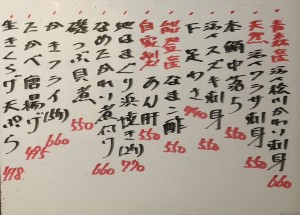 青森産 活〆桧かわり刺身 660
天然 活〆ワラサ刺身 550
本鯛中落ち 550
活〆スズキ刺身 550
下足わさ 440
能登産 なまこ酢 550
自家製 あん肝 550
地はまぐり浜焼き(2ケ) 770
なめたかれい煮付け 660
磯つぶ貝煮 550
かきフライ(5ケ) 660
たかべ唐揚げ 495
生きくらげ天ぷら 418